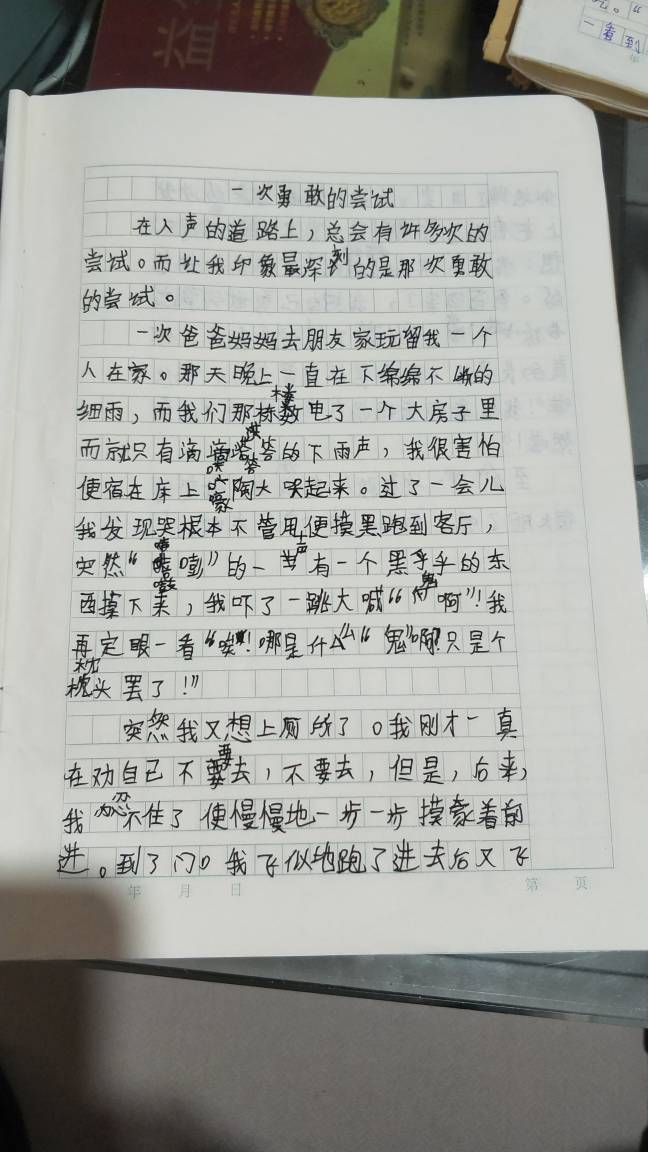 益
一次勇敢的尝试
在人声的道路上，总会有许多次的
尝试。而让我印象最深刻的是那次勇敢
的尝试。
一次爸爸妈妈去朋友家玩留我一个
人在家。那天晚上一直在下绵绵不断的
细雨，而我们那栋楼电了一个大房子里
而就只有滴滴答答的下雨声，我很害怕
便宿在床上嚎陶大哭起来。过了一会儿
我发现哭根本不管用便摸黑跑到客厅，
突然“嘭”的一声有一个黑乎乎的东
西摸下来，我吓了一跳大喊“鬼啊”！我
再定眼一看“唉！哪是什么“鬼”啊？只是个
枕头罢了！”
突然我又想上厕所了。我刚才一真
在劝自己不要去，不要去，但是，后来，
我忍不住了便慢慢地一步一步摸着前
进。到了门。我飞似地跑了进去后又飞
年 月 日 第 页